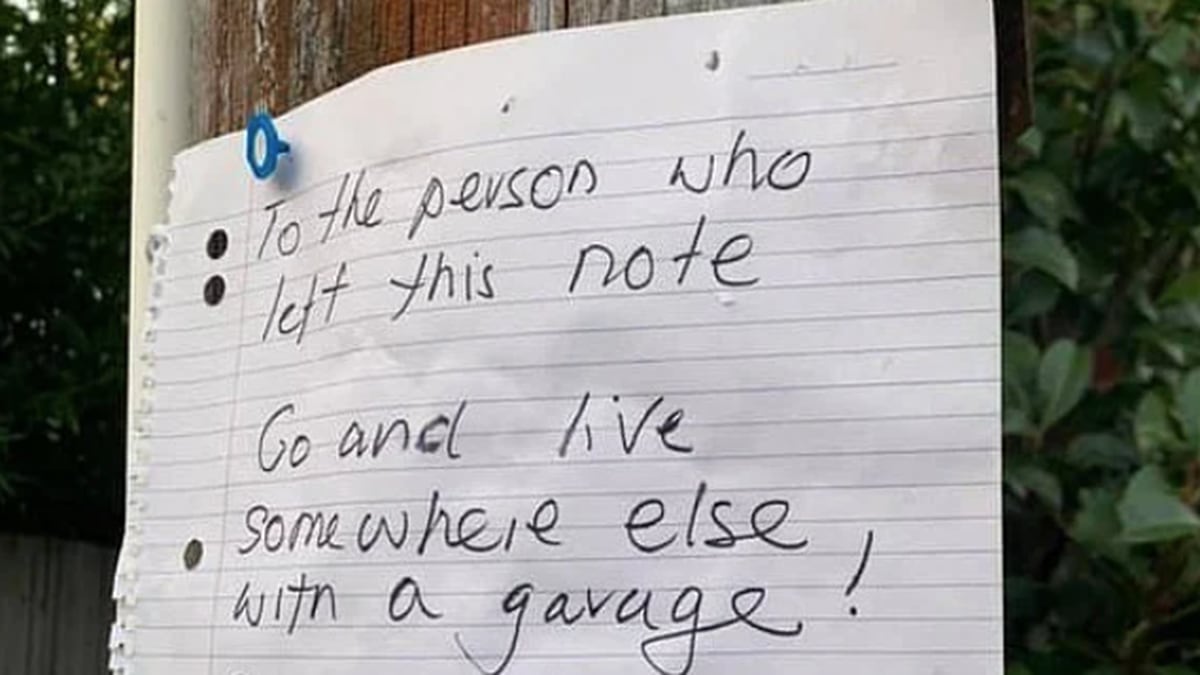 To the person who
left this note
Go and live
somewhere else
with a garage!